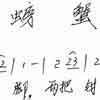 螃 蟹
2 | 1 - | 2 23 | 2
脚, 两把 钳